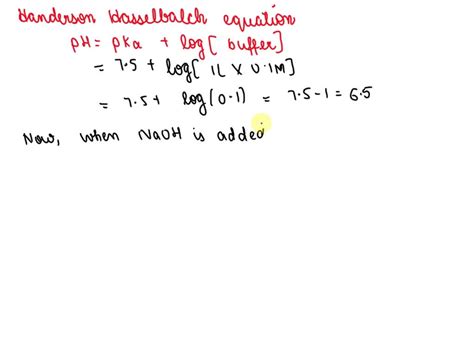 Handerson Hasselbalch equation
pH = pKa + log[buffer]
= 7.5 + log[1L x 0.1M]
= 7.5 + log(0.1) = 7.5 - 1 = 6.5
Now, when NaOH is added